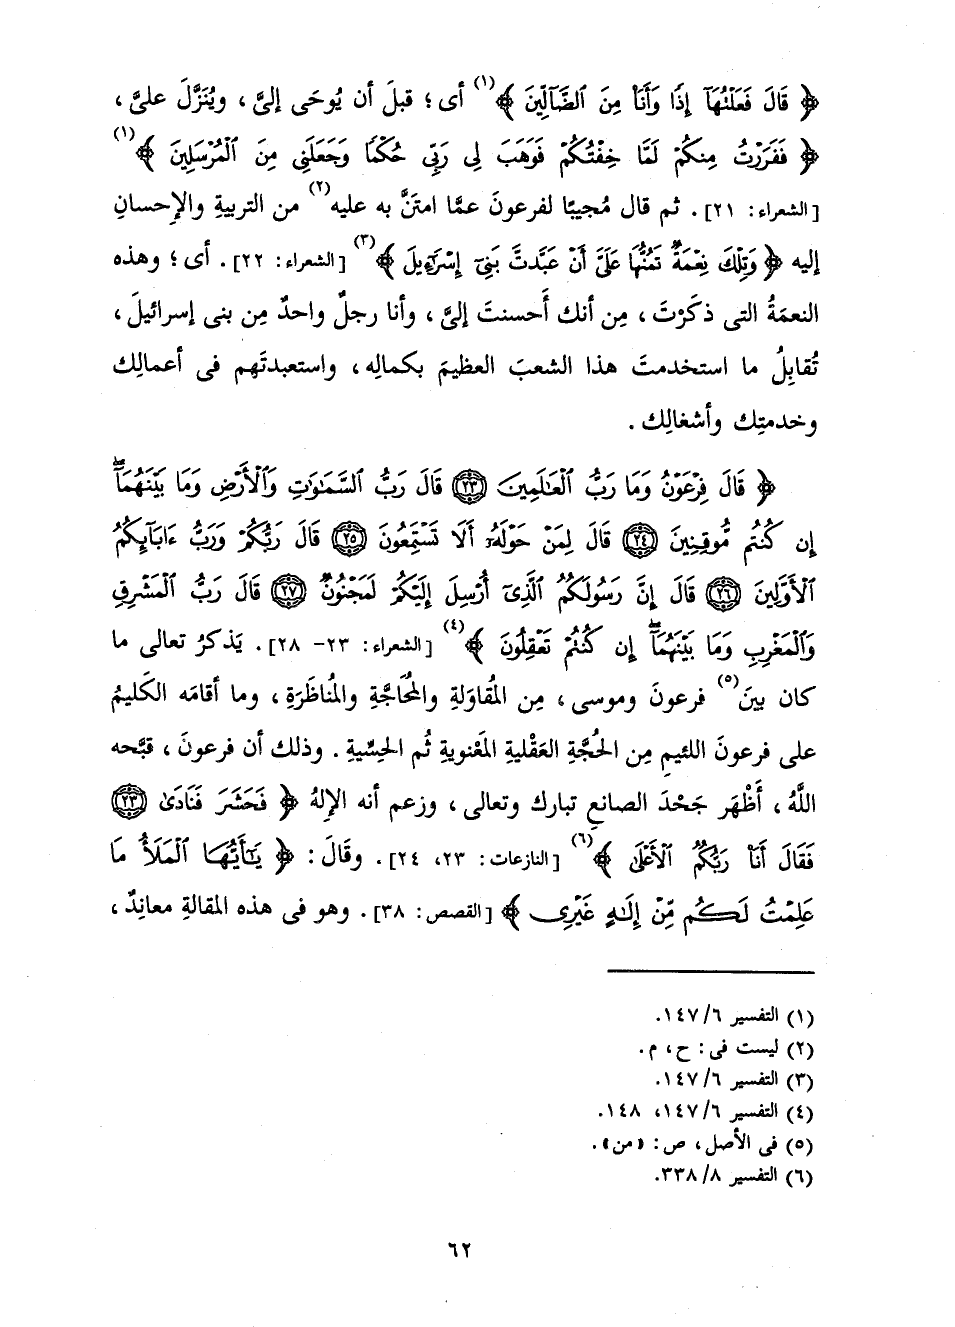 ﴿ قَالَ فَعَلْتُهَآ إِذًا وَأَنَا۠ مِنَ ٱلضَّآلِّينَ ﴾(١) أى ؛ قبلَ أن يُوحَى إلىَّ ، ويُنَزَّلَ علىَّ ،
﴿ فَفَرَرْتُ مِنكُمْ لَمَّا خِفْتُكُمْ فَوَهَبَ لِى رَبِّى حُكْمًا وَجَعَلَنِى مِنَ ٱلْمُرْسَلِينَ ﴾(١)
[الشعراء: ٢١] . ثم قال مُجيبًا لفرعونَ عمَّا امتَنَّ به عليه(٢) من التربيةِ والإحسانِ
إليه ﴿ وَتِلْكَ نِعْمَةٌ تَمُنُّهَا عَلَىَّ أَنْ عَبَّدتَّ بَنِىٓ إِسْرَٰٓءِيلَ ﴾(٣) [الشعراء: ٢٢] . أى ؛ وهذه
النعمَةُ التى ذكَرْتَ ، مِن أنك أَحسنتَ إلىَّ ، وأنا رجلٌ واحدٌ مِن بنى إسرائيلَ ،
تُقابِلُ ما استخدمتَ هذا الشعبَ العظيمَ بكمالِه ، واستعبدتَهم فى أعمالِك
وخدمتِك وأشغالِك .
﴿ قَالَ فِرْعَوْنُ وَمَا رَبُّ ٱلْعَٰلَمِينَ ٢٣ قَالَ رَبُّ ٱلسَّمَٰوَٰتِ وَٱلْأَرْضِ وَمَا بَيْنَهُمَآ ۖ
إِن كُنتُم مُّوقِنِينَ ٢٤ قَالَ لِمَنْ حَوْلَهُۥٓ أَلَا تَسْتَمِعُونَ ٢٥ قَالَ رَبُّكُمْ وَرَبُّ ءَابَآئِكُمُ
ٱلْأَوَّلِينَ ٢٦ قَالَ إِنَّ رَسُولَكُمُ ٱلَّذِىٓ أُرْسِلَ إِلَيْكُمْ لَمَجْنُونٌ ٢٧ قَالَ رَبُّ ٱلْمَشْرِقِ
وَٱلْمَغْرِبِ وَمَا بَيْنَهُمَآ ۖ إِن كُنتُمْ تَعْقِلُونَ ﴾(٤) [الشعراء: ٢٣- ٢٨] . يَذكرُ تعالى ما
كان بينَ(٥) فرعونَ وموسى ، مِن المُقاوَلةِ والمُحاجَّةِ والمُناظَرَةِ ، وما أقامَه الكَليمُ
على فرعونَ اللئيمِ مِن الحُجَّةِ العَقْليةِ المَعْنويةِ ثُم الحِسِّيةِ . وذلك أن فرعونَ ، قبَّحه
اللَّهُ ، أَظْهَر جَحْدَ الصانعِ تبارك وتعالى ، وزعم أنه الإلهُ ﴿ فَحَشَرَ فَنَادَىٰ ٢٣
فَقَالَ أَنَا۠ رَبُّكُمُ ٱلْأَعْلَىٰ ﴾(٦) [النازعات: ٢٣، ٢٤] . وقالَ : ﴿ يَٰٓأَيُّهَا ٱلْمَلَأُ مَا
عَلِمْتُ لَكُم مِّنْ إِلَٰهٍ غَيْرِى ﴾ [القصص: ٣٨] . وهو فى هذه المقالةِ معاندٌ ،
(١) التفسير ٦/ ١٤٧.
(٢) ليست فى : ح ، م .
(٣) التفسير ٦/ ١٤٧.
(٤) التفسير ٦/ ١٤٧، ١٤٨.
(٥) فى الأصل ، ص : «من» .
(٦) التفسير ٨/ ٣٣٨.
٦٢